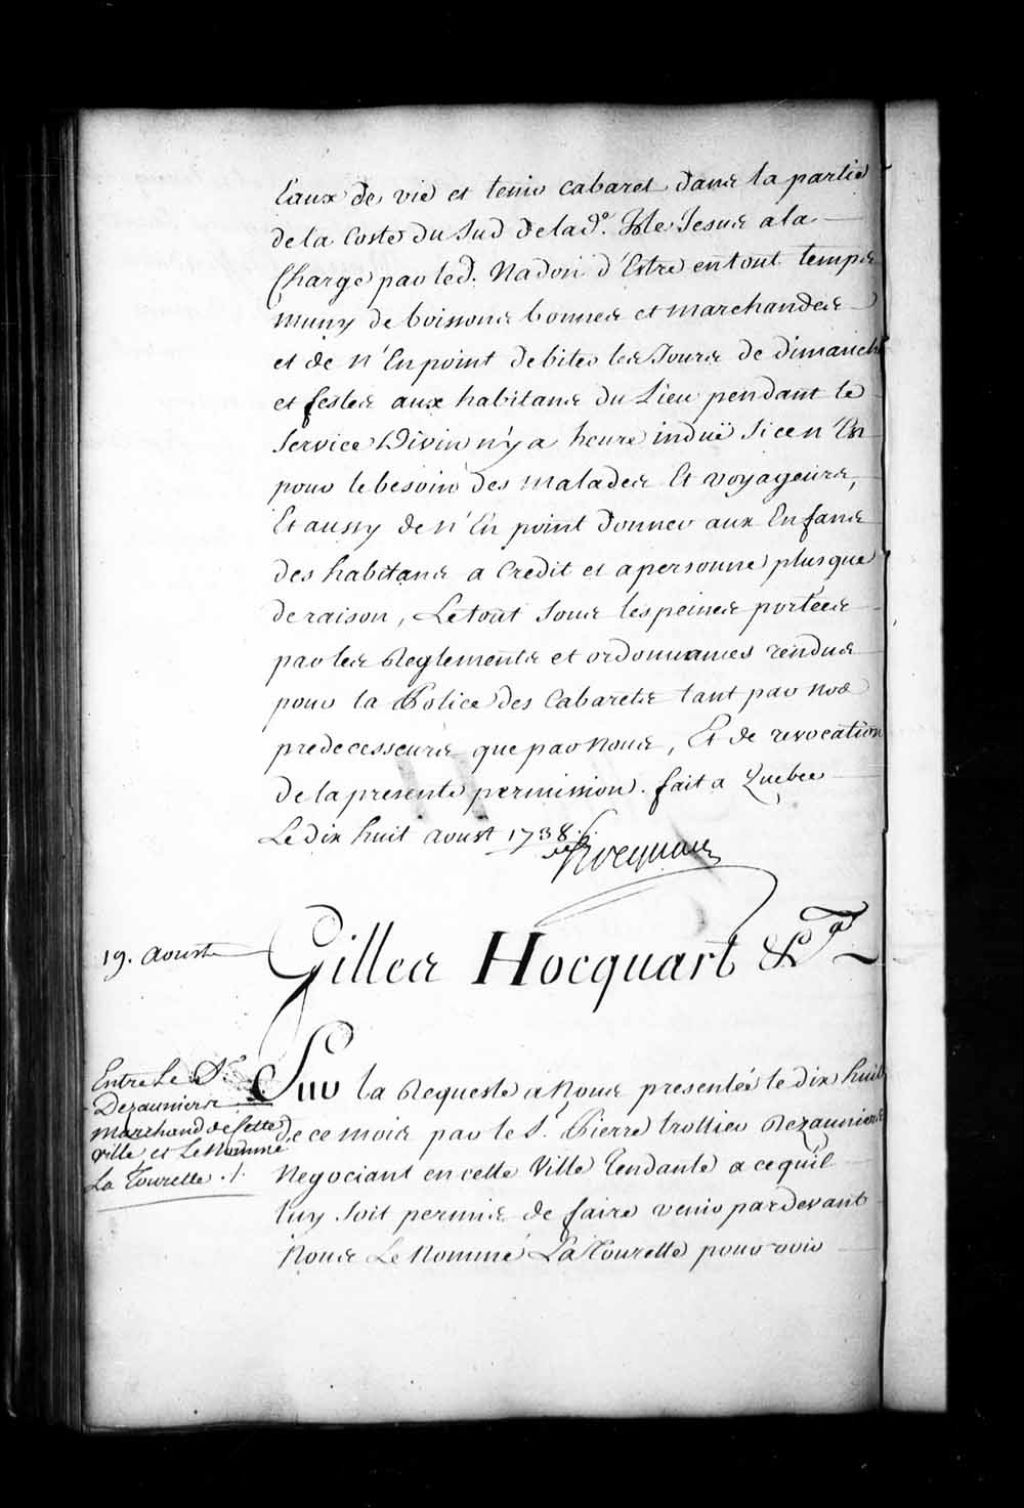 Eaux de vie et tenir cabaret dans la partie
de la Coste du Sud de lad.e Isle Jesus a la
Charge par led. Nadon d'Estre en tout temps
muny de boissons bonnes et marchandes
et de n'En point debiter les Jours de dimanche
et festes aux habitans du Lieu pendant le
Service Divin n'y a heure induë Si ce n'Est
pour le besoin des malades Et voyageurs,
Et aussy de n'En point donner aux Enfans
des habitans a Credit et a personne plus que
de raison, Le tout Sous les peines portées
par les Reglements et ordonnances rendus
pour la Police des Cabarets tant par nos
predecesseurs que par Nous, Et de revocation
de la presente permission. fait a Quebec
Le dix huit aoust 1738 ./.
Hocquart
19. aoust
Gilles Hocquart &.a
Entre Le S.r
Dezauniers
Marchand de Cette
ville et Le Nommé
La Tourette ./.
Sur la Requeste a Nous presentée le dix huit
de ce mois par le S.r Pierre trottier Dezauniers
Negociant en cette Ville Tendante a ce quil
luy Soit permis de faire venir pardevant
Nous Le Nommé La Tourette pour voir